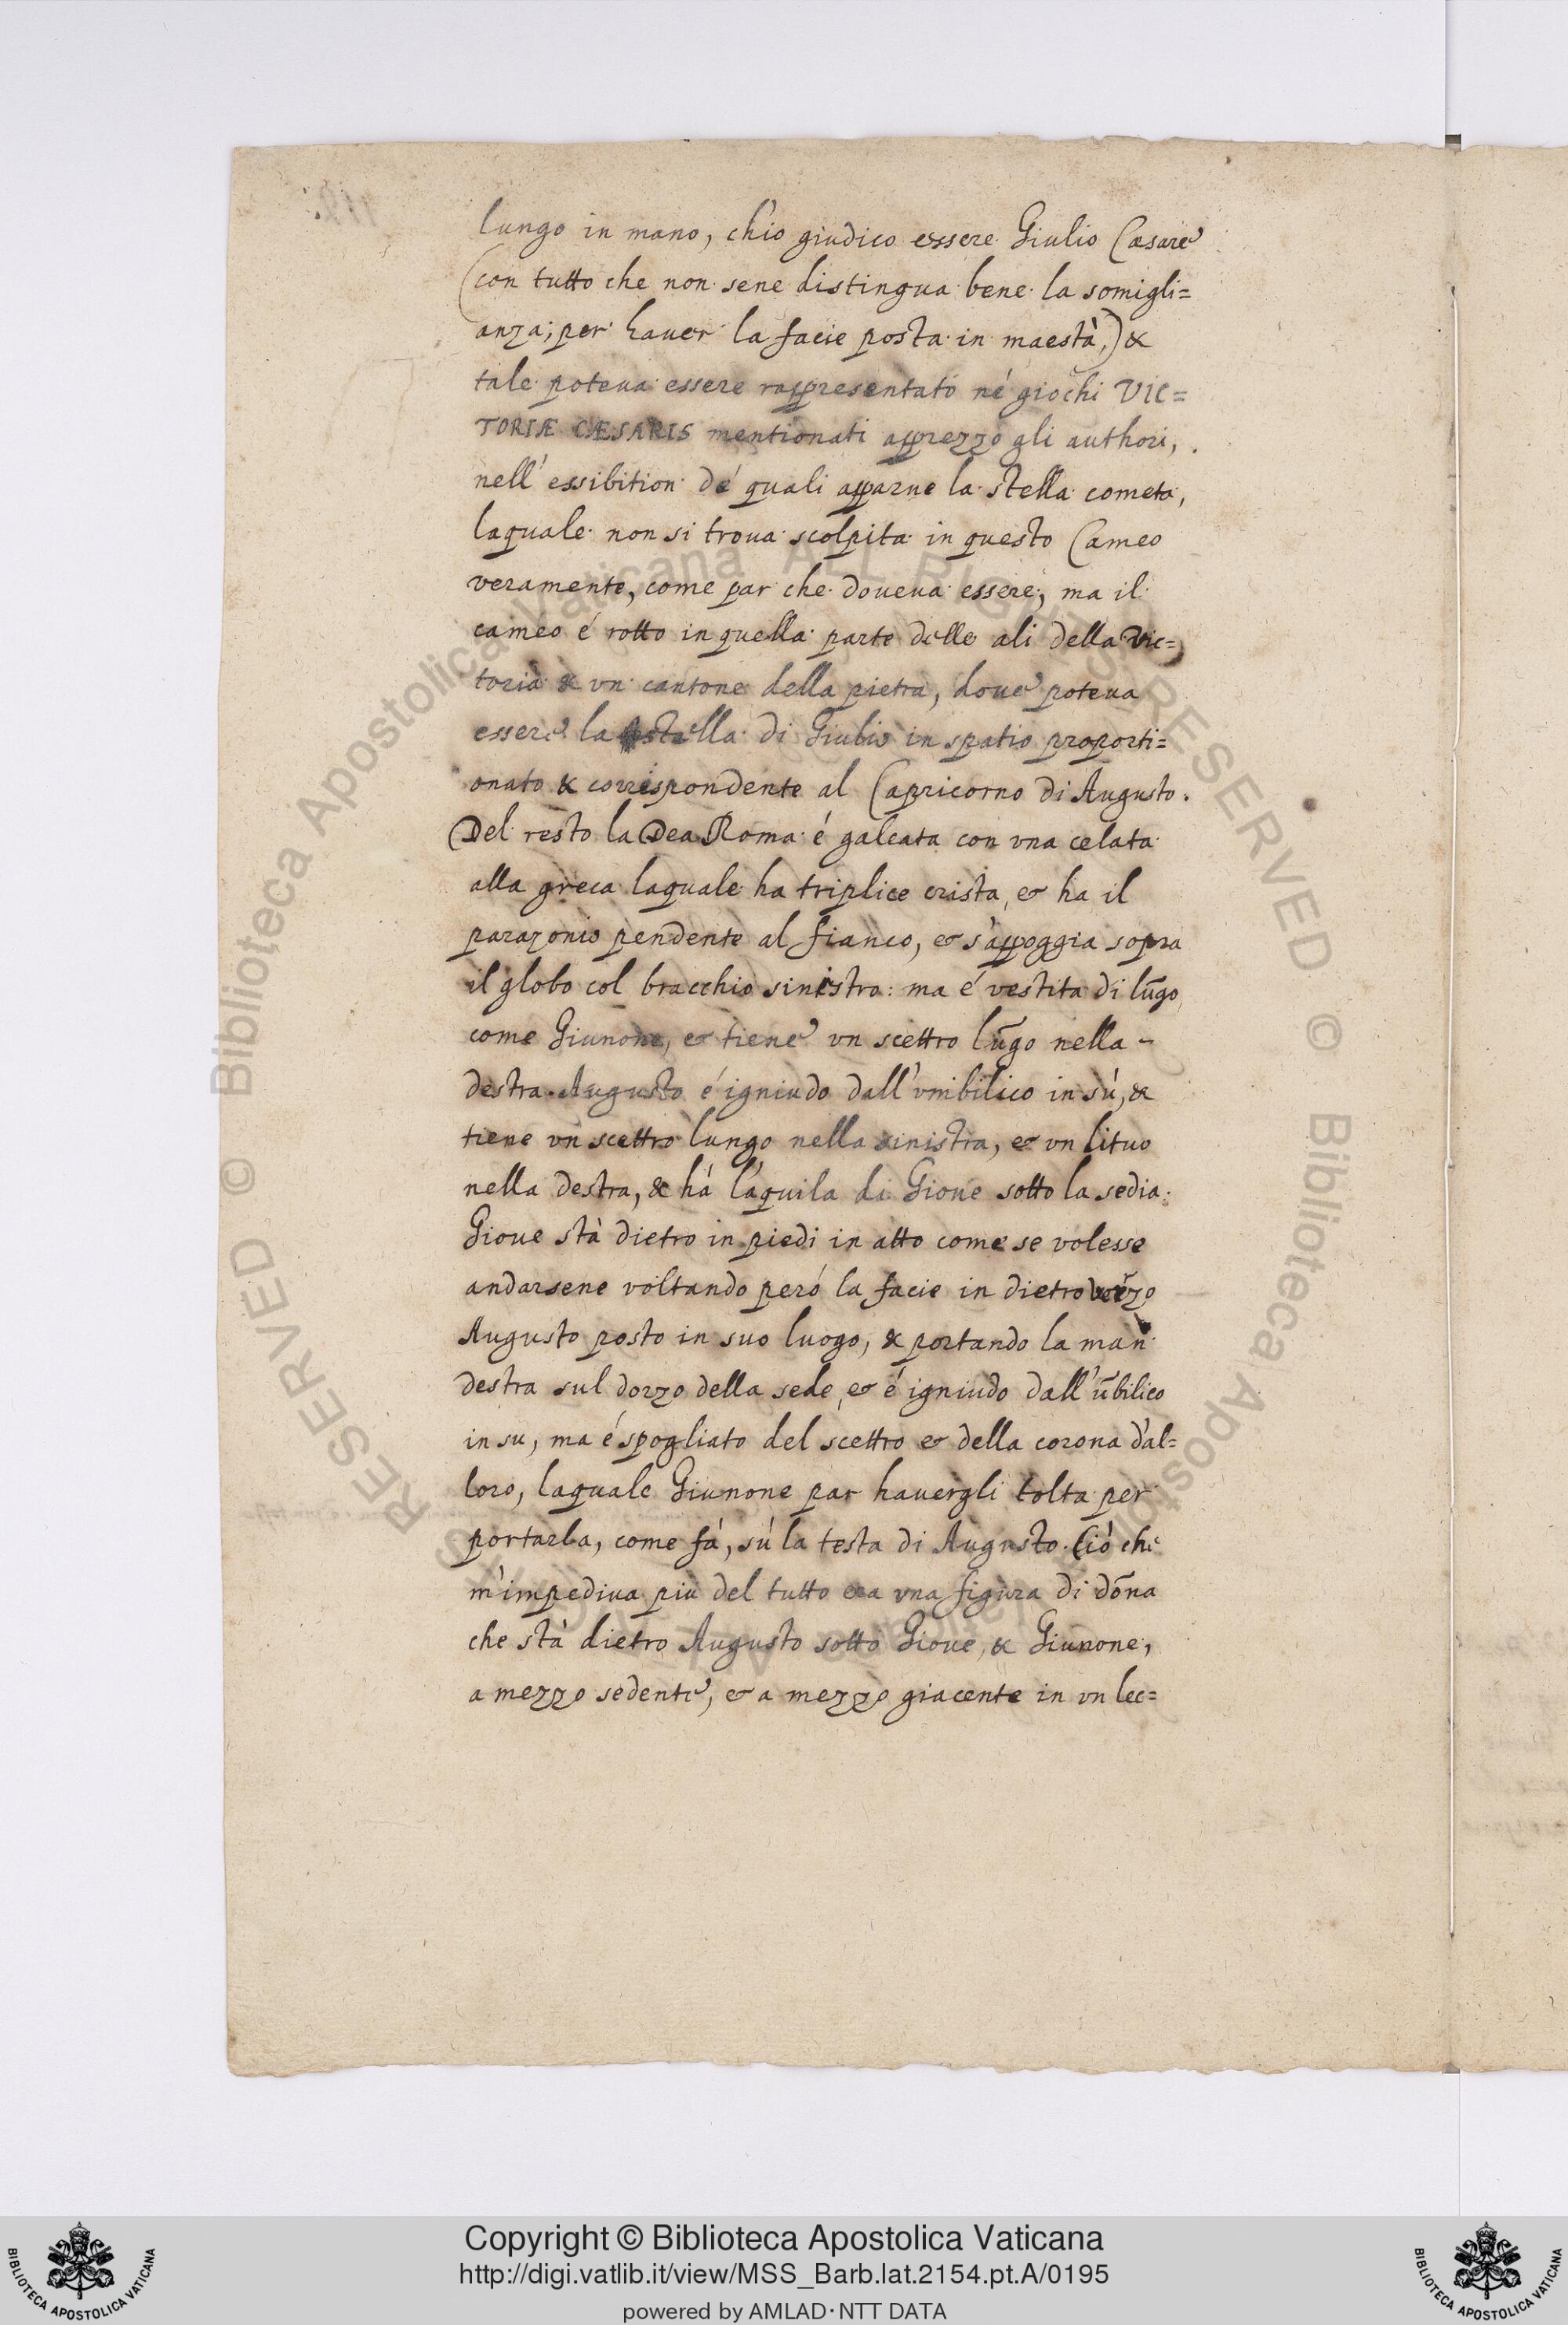 lungo in mano, ch'io giudico essere Giulio Cæsare
(con tutto che non sene distingua bene la somigli=
anza; per hauer la facie posta in maestà,) &
tale poteua essere rappresentato né giochi VIC=
TORIÆ CÆSARIS mentionati apprezzo gli authori,
nell' essibition dé quali apparue la stella cometa,
laquale non si troua scolpita in questo Cameo
veramente, come par che doueua essere, ma il
cameo é rotto in quella parte delle ali della Vic=
toria & vn cantone della pietra, doue poteua
essere la stella di Giulio in spatio proporti=
onato & correspondente al Capricorno di Augusto.
Del resto la Dea Roma é galeata con vna celata
alla greca laquale ha triplice crista, & ha il
parazonio pendente al fianco, & s'appoggia sopra
il globo col bracchio sinistro: ma é vestita di lũgo
come Giunone, & tiene vn scettro lũgo nella -
destra. Augusto é igniudo dall'vmbilico in sú, &
tiene vn scettro lungo nella sinistra, & vn lituo
nella destra, & há l'aquila di Gioue sotto la sedia.
Gioue stà dietro in piedi in atto come se volesse
andarsene voltando peró la facie in dietro verzo
Augusto posto in suo luogo, & portando la man
destra sul dorzo della sede, & é igniudo dall'ũbilico
in su, ma é spogliato del scettro & della corona d'al=
loro, laquale Giunone par hauergli tolta per
portarla, come fá, sú la testa di Augusto. Ciò che
m'impediua più del tutto era vna figura di dõna
che stà dietro Augusto sotto Gioue, & Giunone,
a mezzo sedente, & a mezzo giacente in vn lec=
RESERVED © Biblioteca Apostolica Vaticana ALL RIGHTS RESERVED © Biblioteca Apostolica Vaticana ALL RIGHTS
Copyright © Biblioteca Apostolica Vaticana
http://digi.vatlib.it/view/MSS_Barb.lat.2154.pt.A/0195
powered by AMLAD·NTT DATA
BIBLIOTECA APOSTOLICA VATICANA
BIBLIOTECA APOSTOLICA VATICANA